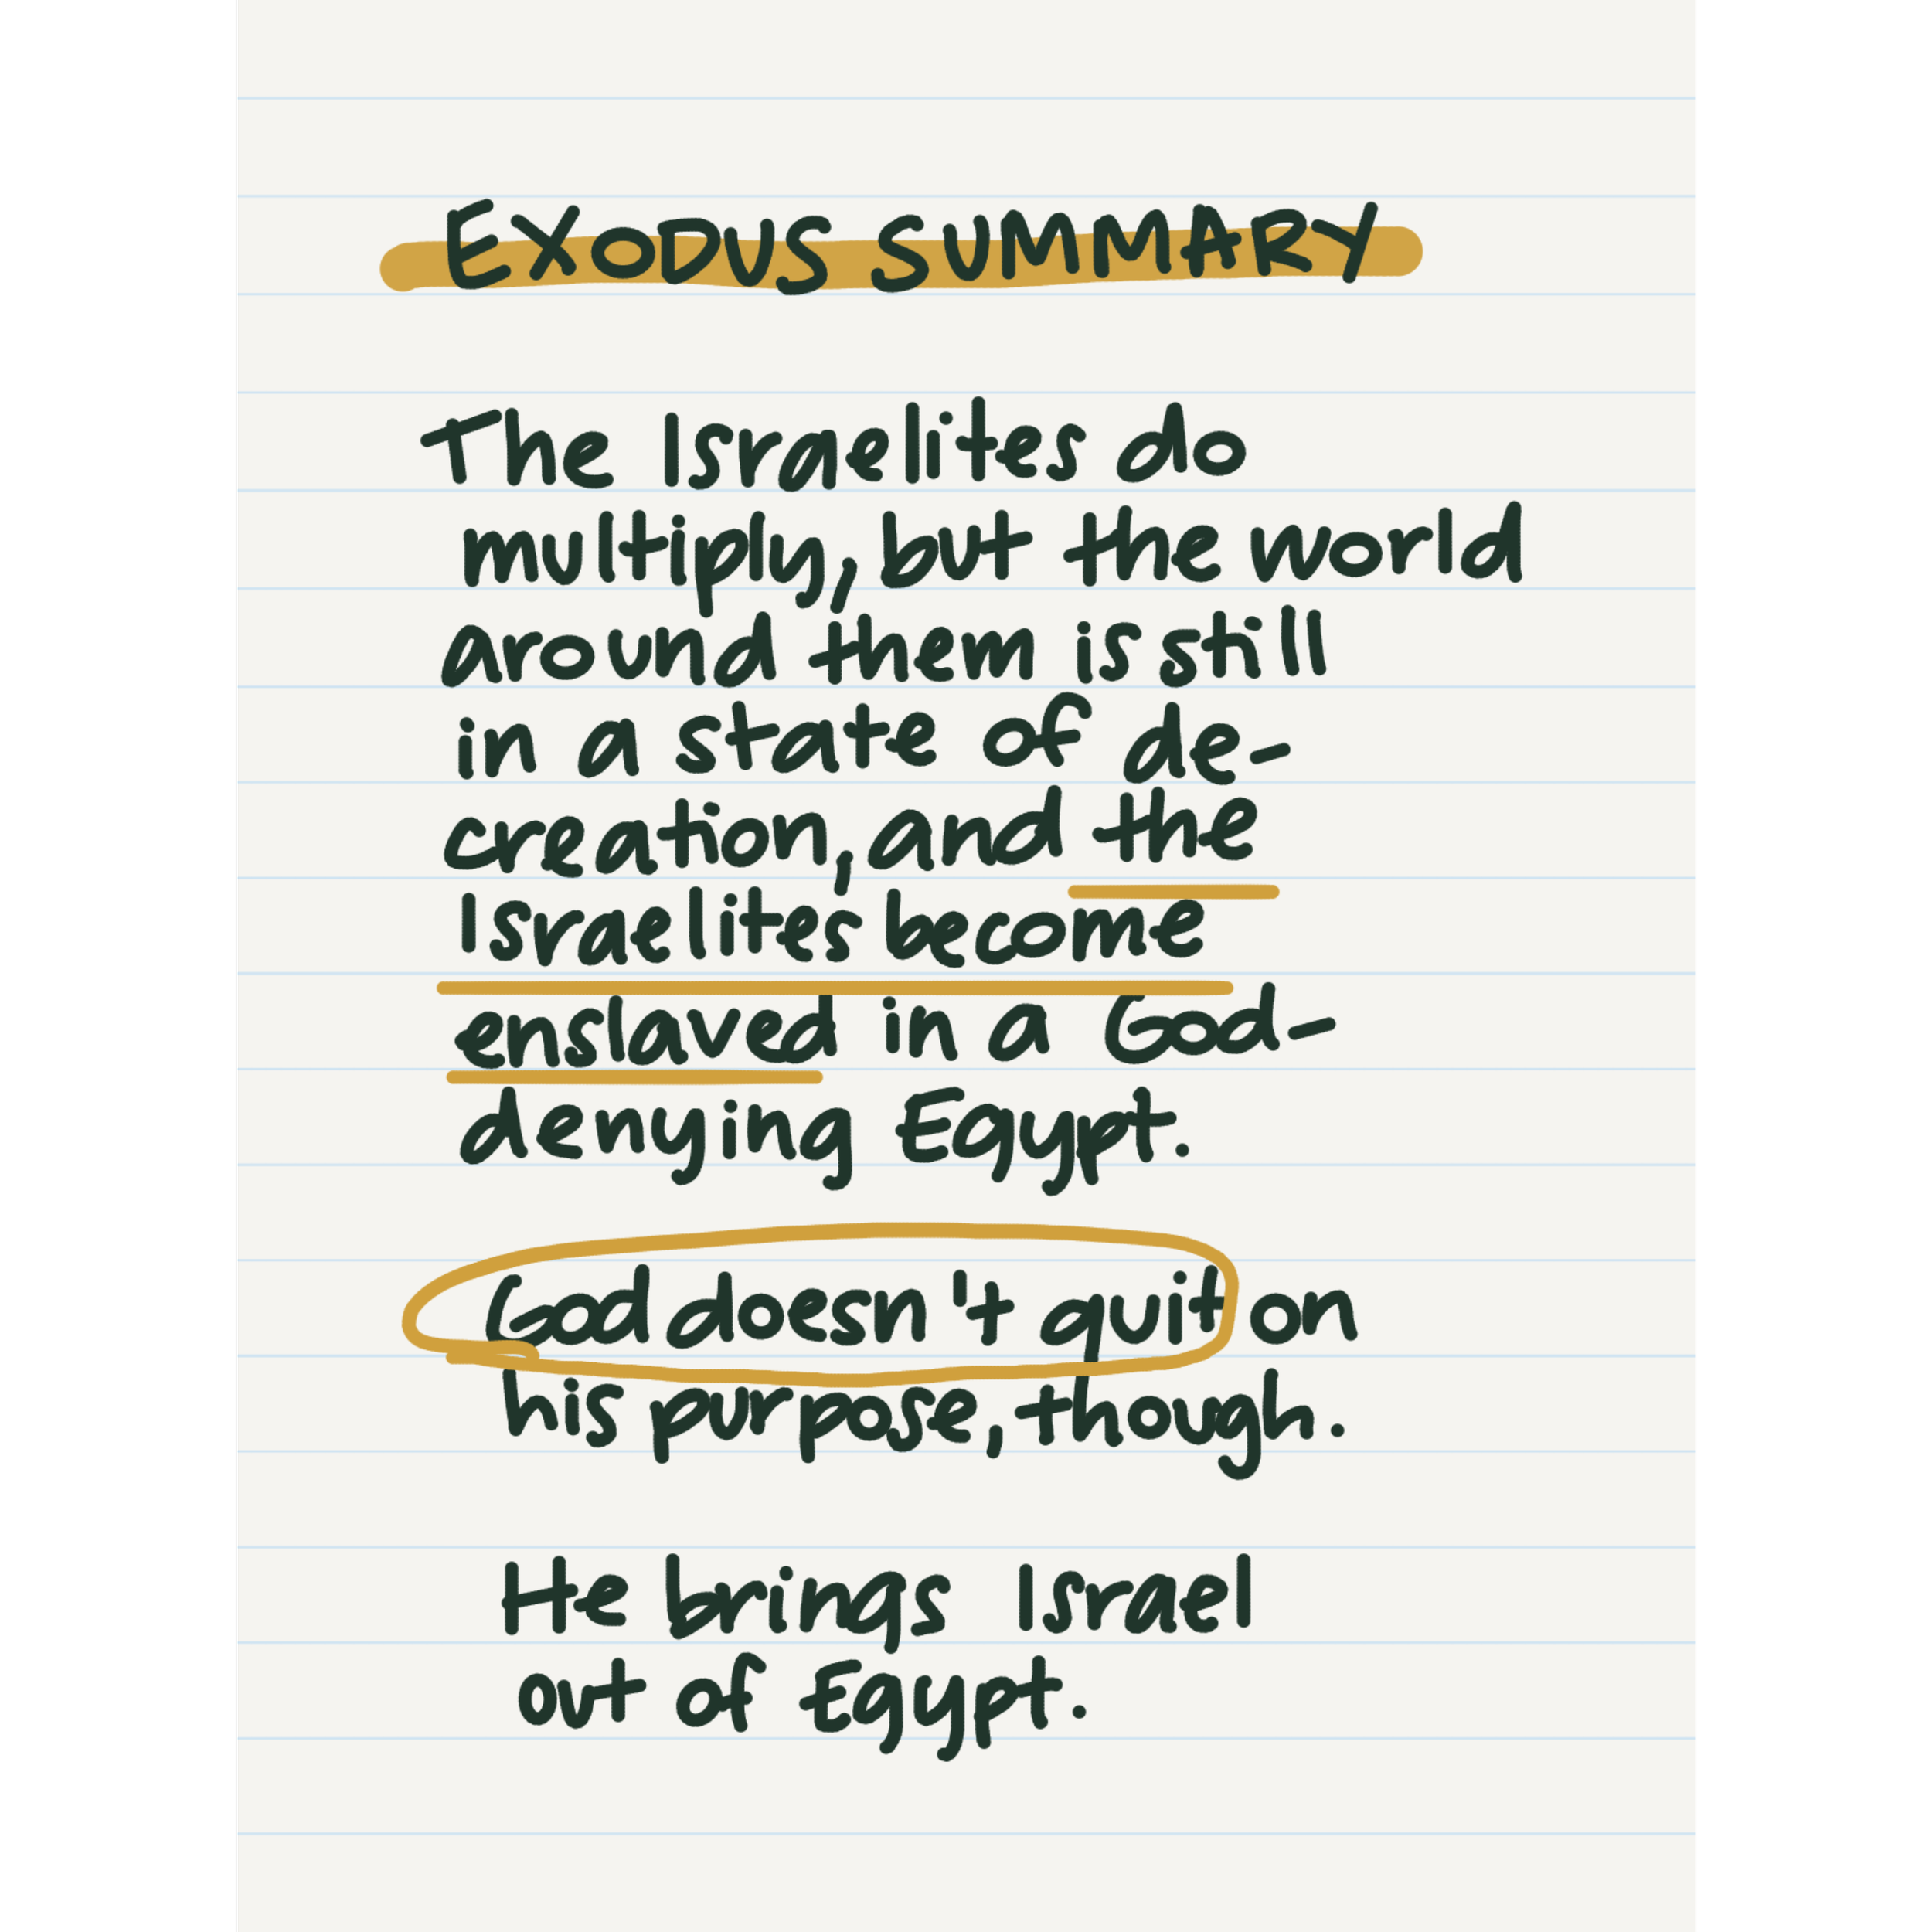 EXODUS SUMMARY
The Israelites do
multiply, but the world
around them is still
in a state of de-
creation, and the
Israelites become
enslaved in a God-
denying Egypt.
God doesn't quit on
his purpose, though.
He brings Israel
out of Egypt.